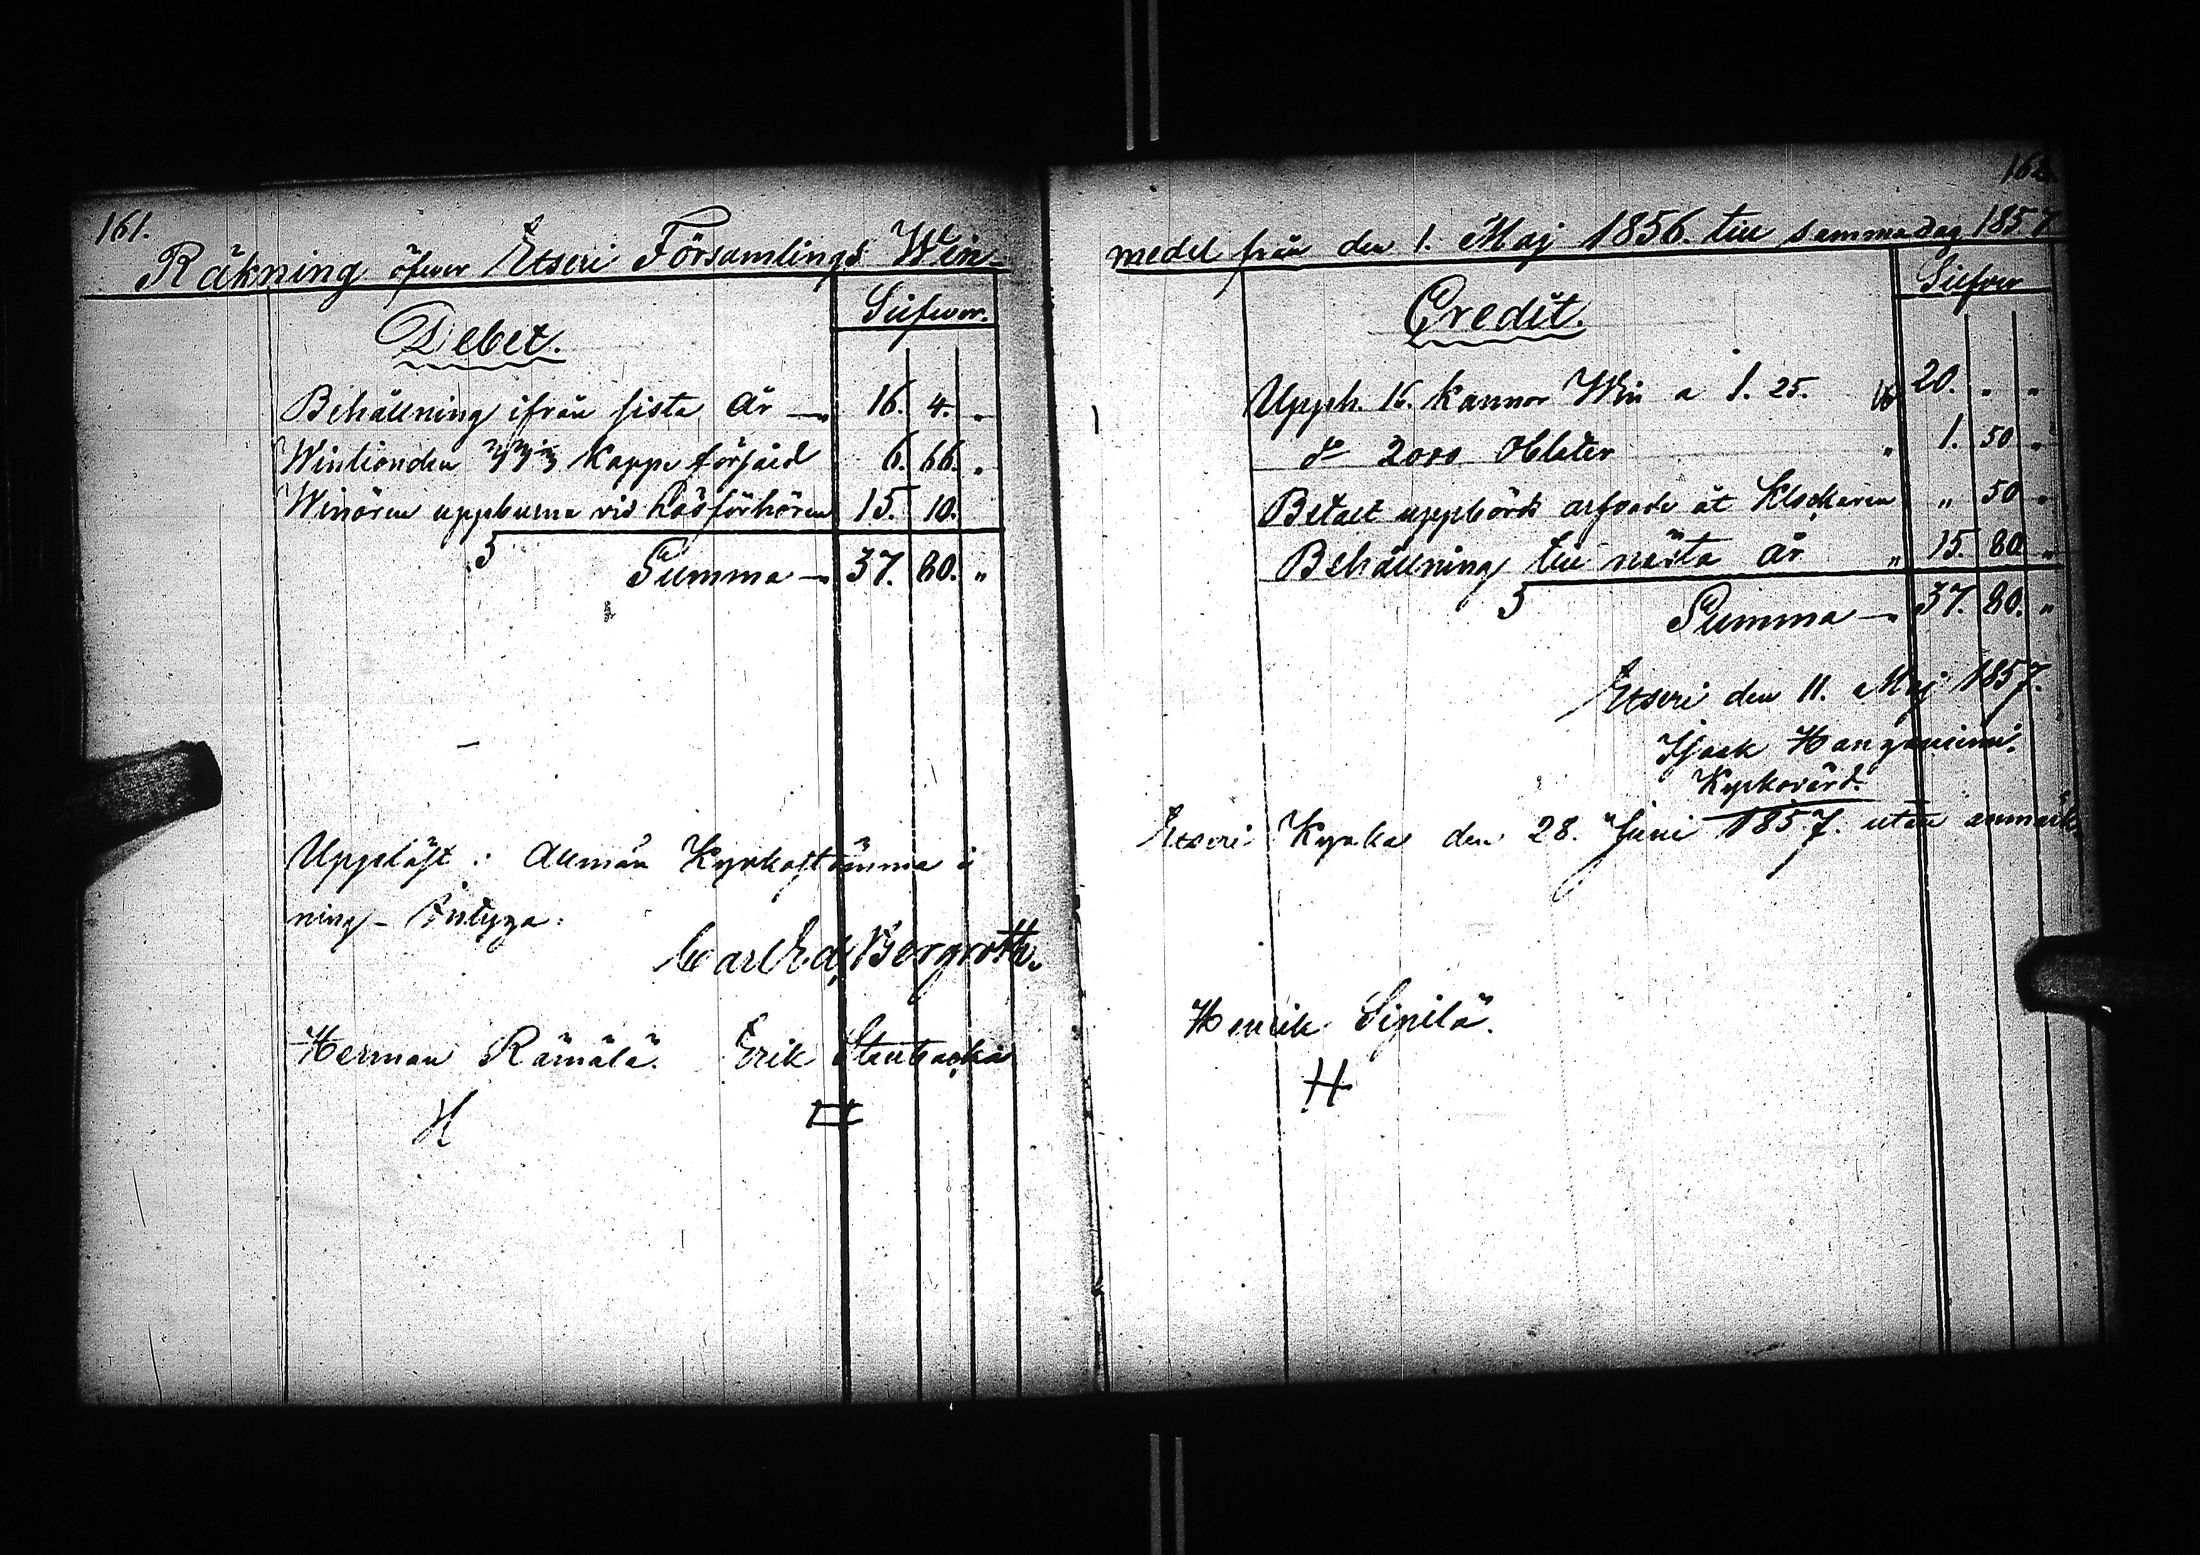 161.
Räkning öfwer Etseri Församlings Win-
Silfwer.
Debet.
Behållning ifrån sista år — 16. 4. "
Wintionden kappe försåld 6. 66. "
Winören uppburne vid Läsförhören 15. 10.
Summa — 37. 80. "
Uppläst i Allmän Kyrkostämma i
ning - Intyga:
Carl Ed. Borgroth.
Herman Rämälä. Erik Stenbacka
162.
medel från den 1. Maj 1856. till samma dag 1857
Silfver
Credit.
Upph. 16. kannor Win a 1. 25. 20. " "
d:o 2000 Oblater " 1. 50 "
Betalt uppbörds arfvode åt Klockaren " 50 "
Behållning till nästa år " 15. 80 "
Summa — 37. 80. "
Etseri den 11. Maj 1857.
Isaak
Kyrkovärd.
Etseri Kyrka den 28. Juni 1857. utan anmärk-
Henrik Sipilä.